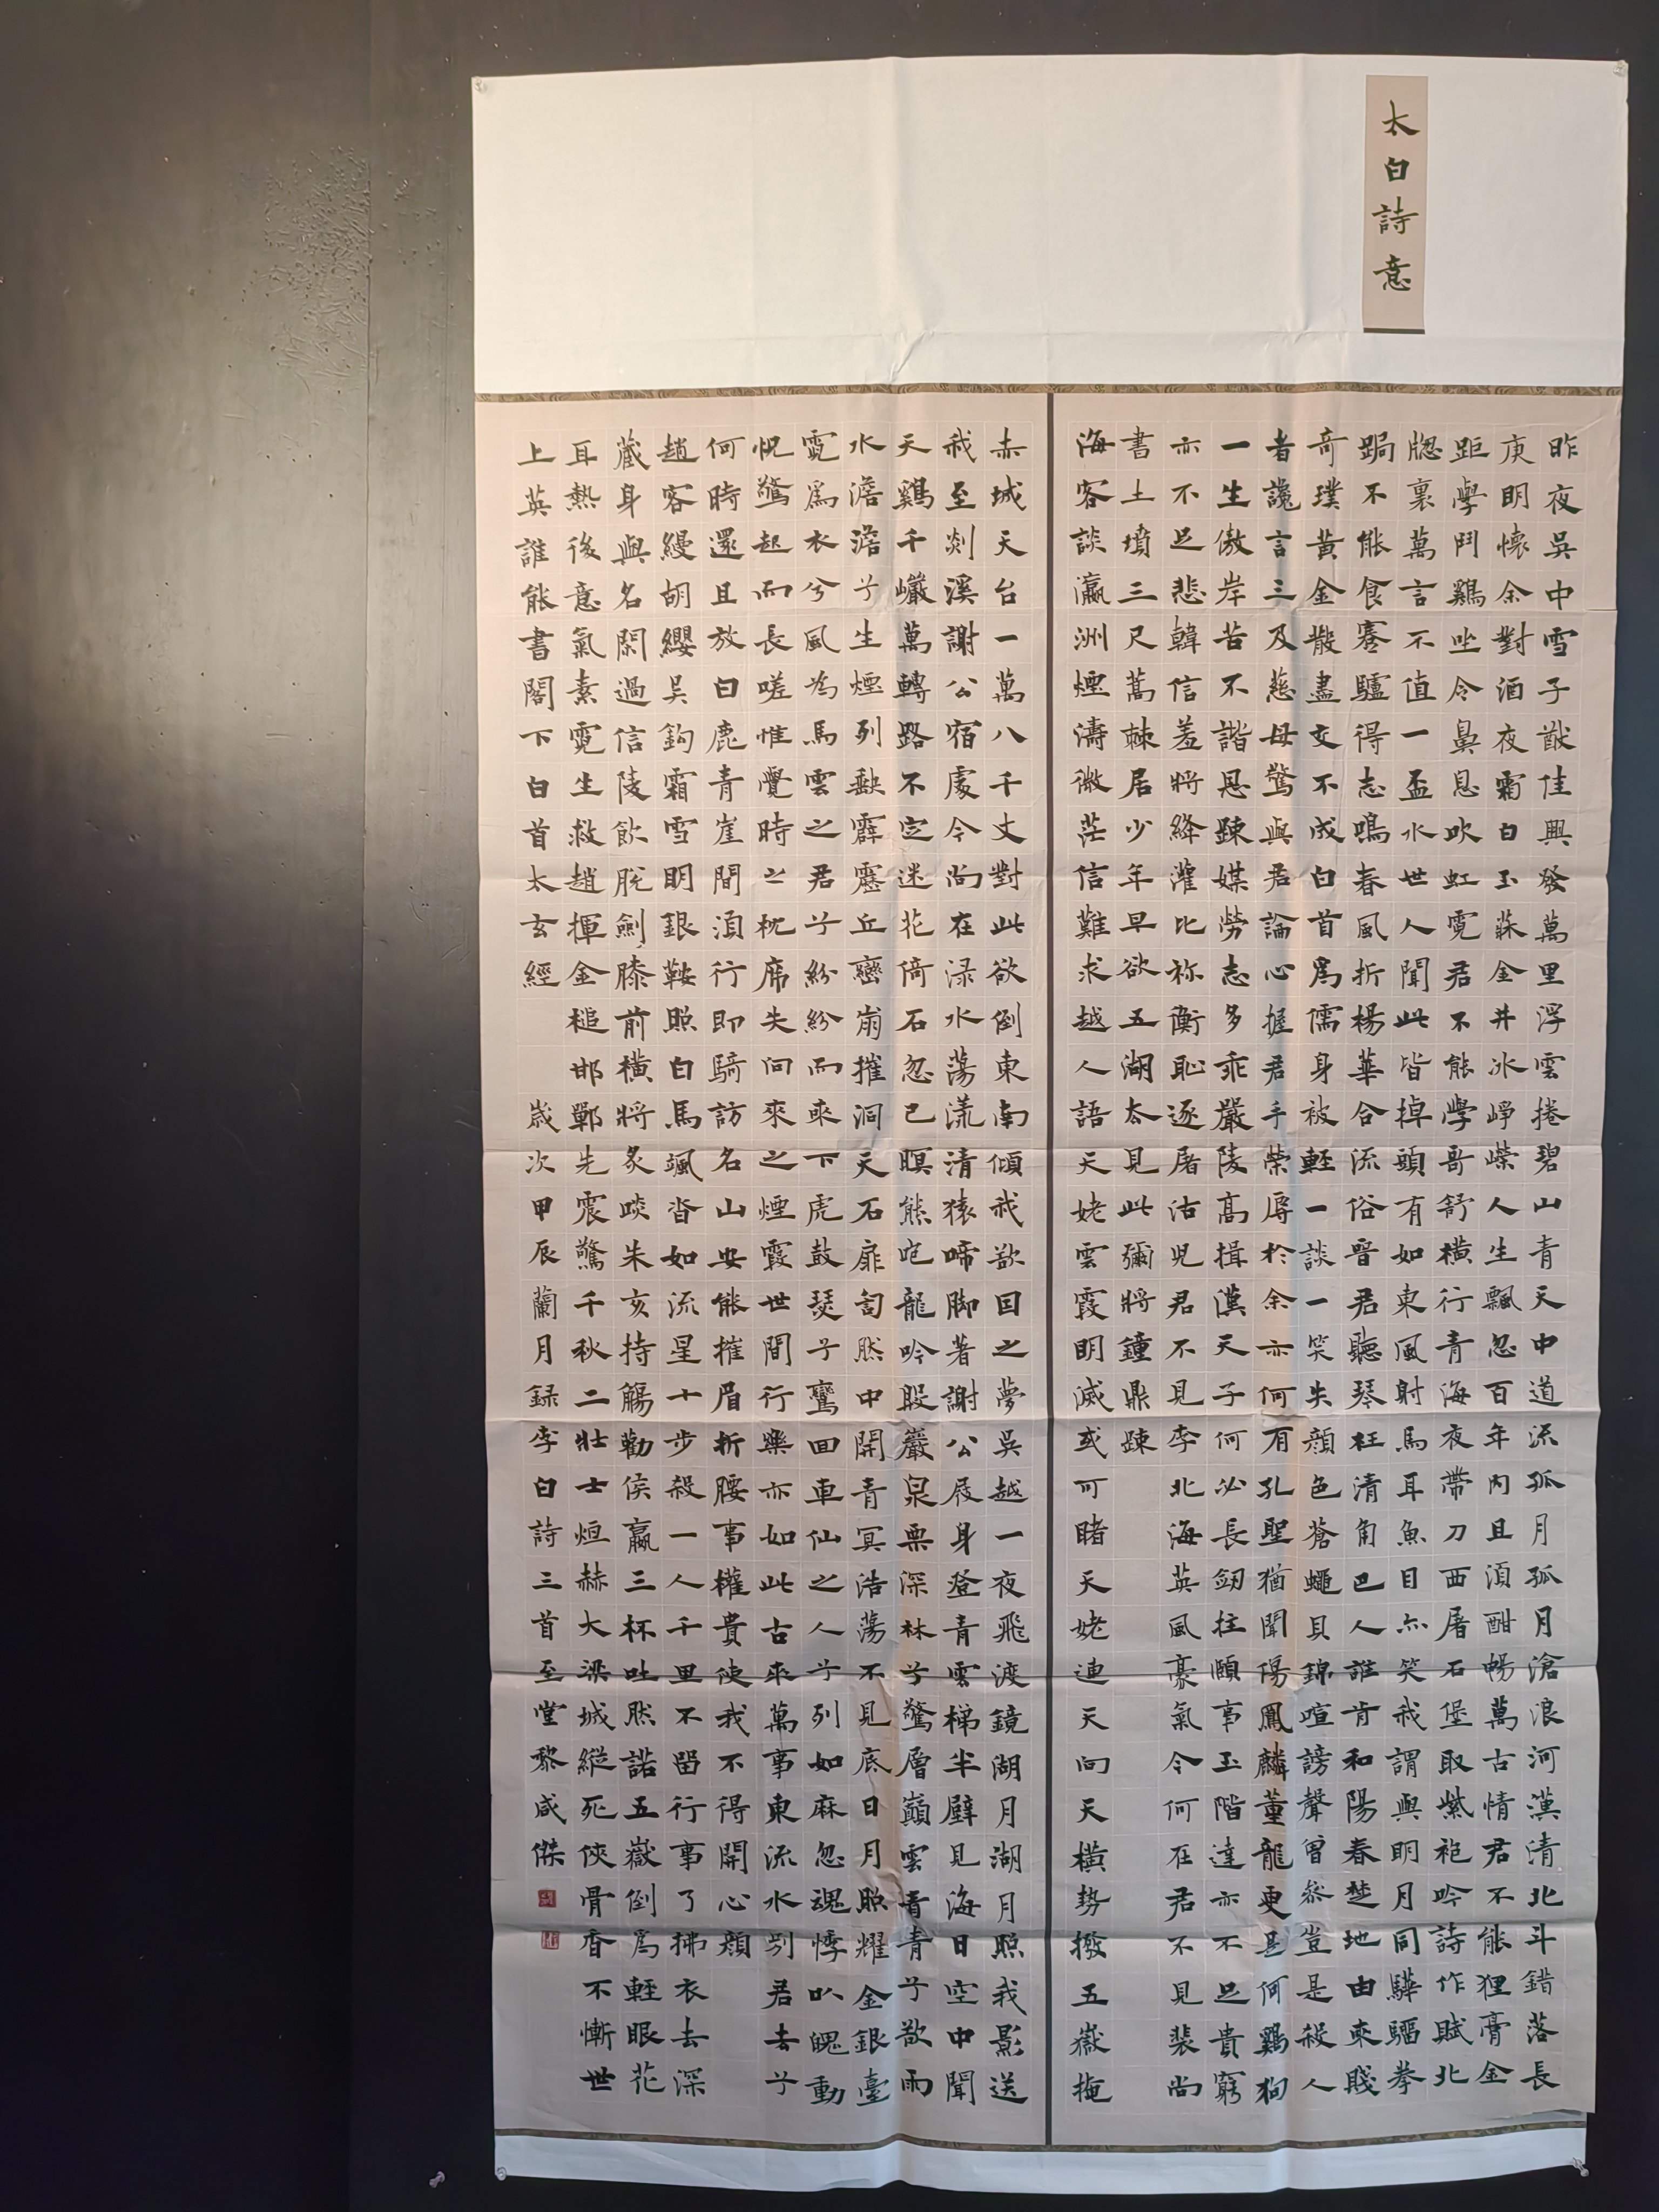 太白詩意
昨夜吳中雪子猷佳興發萬里浮雲捲碧山青天中道流孤月孤月滄浪河漢清北斗錯落長
庚明懷余對酒夜霜白玉牀金井冰崢嶸人生飄忽百年內且須酣暢萬古情君不能狸膏金
距學鬥鷄坐令鼻息吹虹霓君不能學哥舒橫行青海夜帶刀西屠石堡取紫袍吟詩作賦北
牕裏萬言不值一盃水世人聞此皆掉頭有如東風射馬耳魚目亦笑我謂與明月同驊騮拳
跼不能食蹇驢得志鳴春風折楊華合流俗晉君聽琴枉清角巴人誰肯和陽春楚地由來賤
奇璞黃金散盡交不成白首爲儒身被輕一談一笑失顏色蒼蠅貝錦喧謗聲曾參豈是殺人
者讒言三及慈母驚與君論心握君手榮辱於余亦何有孔聖猶聞傷鳳麟董龍更是何鷄狗
一生傲岸苦不諧恩踈媒勞志多乖嚴陵高揖漢天子何必長劒拄頤事玉階達亦不足貴窮
亦不足悲韓信羞將絳灌比祢衡恥逐屠沽兒君不見李北海英風豪氣今何在君不見裴尚
書土墳三尺蒿棘居少年早欲五湖去見此彌將鐘鼎踈
海客談瀛洲煙濤微茫信難求越人語天姥雲霞明滅或可睹天姥連天向天橫勢撥五嶽掩
赤城天台一萬八千丈對此欲倒東南傾我欲因之夢吳越一夜飛渡鏡湖月湖月照我影送
我至剡溪謝公宿處今尚在渌水蕩漾清猿啼脚著謝公屐身登青雲梯半壁見海日空中聞
天鷄千巗萬轉路不定迷花倚石忽已暝熊咆龍吟殷巖泉栗深林兮驚層巔雲青青兮欲雨
水澹澹兮生煙列缺霹靂丘巒崩摧洞天石扉訇然中開青冥浩蕩不見底日月照耀金銀臺
霓爲衣兮風為馬雲之君兮紛紛而來下虎鼓瑟兮鸞回車仙之人兮列如麻忽魂悸以魄動
怳驚起而長嗟惟覺時之枕席失向來之煙霞世間行樂亦如此古來萬事東流水別君去兮
何時還且放白鹿青崖間須行即騎訪名山安能摧眉折腰事權貴使我不得開心顏
趙客縵胡纓吳鈎霜雪明銀鞍照白馬颯沓如流星十步殺一人千里不留行事了拂衣去深
藏身與名閑過信陵飲脫劍膝前橫將炙啖朱亥持觴勸侯嬴三杯吐然諾五嶽倒爲輕眼花
耳熱後意氣素霓生救趙揮金槌邯鄲先震驚千秋二壯士烜赫大梁城縱死俠骨香不慚世
上英誰能書閣下白首太玄經 歲次甲辰蘭月錄李白詩三首至堂黎咸傑